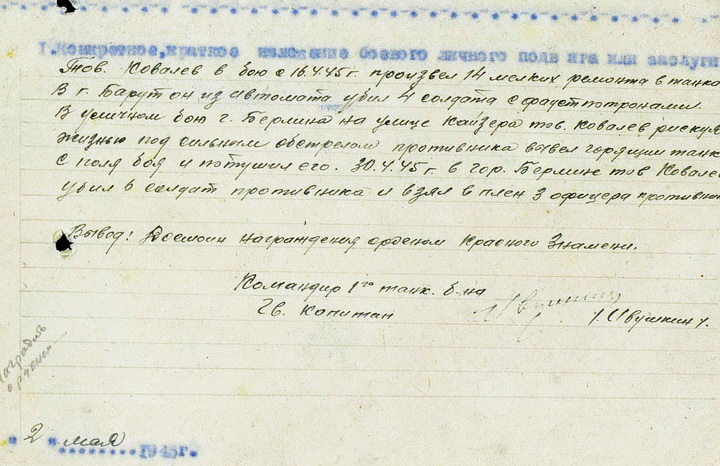 I. Конкретное, краткое изложение боевого личного подвига или заслуги
Тов. Ковалев в бою с 16.4.45г. произвел 14 мелких ремонта в танка
В г. Барут он из автомата убил 4 солдата с фаустпотронами.
В уличном бою г. Берлина на улице Кайзера тов. Ковалев рискуя
жизнью под сильным обстрелом противника вывел горящий танк
с поля боя и потушил его. 30.4.45г. в гор. Берлине тов Ковалев
убил 6 солдат противника и взял в плен 3 офицера противни
Вывод: Достоин награждения орденом Красного Знамени.
Командир 1го танк. б-на
Гв. Капитан
/Ивушкин/.
"2" мая 1945г.